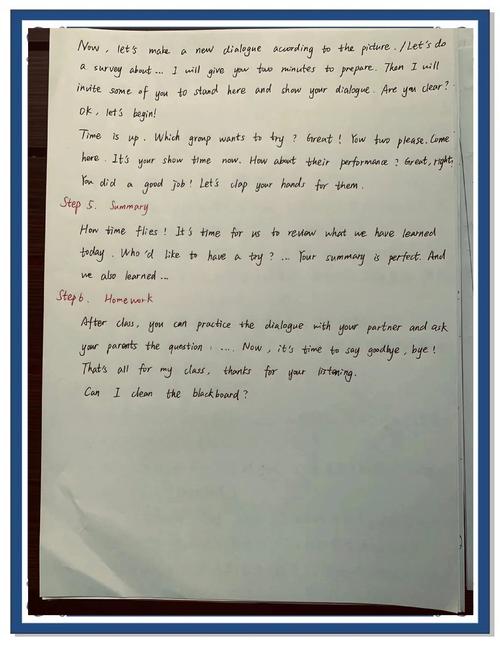 Now, let's make a new dialogue according to the picture. /Let's do
a survey about... I will give you two minutes to prepare. Then I will
invite some of you to stand here and show your dialogue. Are you clear?
OK, let's begin!
Time is up. Which group wants to try? Great! You two please. Come
here. It's your show time now. How about their performance? Great, right?
You did a good job! Let's clap your hands for them.
Step 5. Summary
How time flies! It's time for us to review what we have learned
today. Who'd like to have a try? ... Your summary is perfect. And
we also learned...
Step 6. Homework
After class, you can practice the dialogue with your partner and ask
your parents the question: .... Now, it's time to say goodbye, bye!
That's all for my class, thanks for your listening.
Can I clean the blackboard?